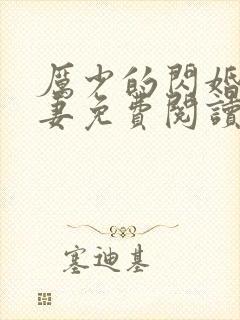 厲少的閃婚
妻免費閱讀
塞迪基